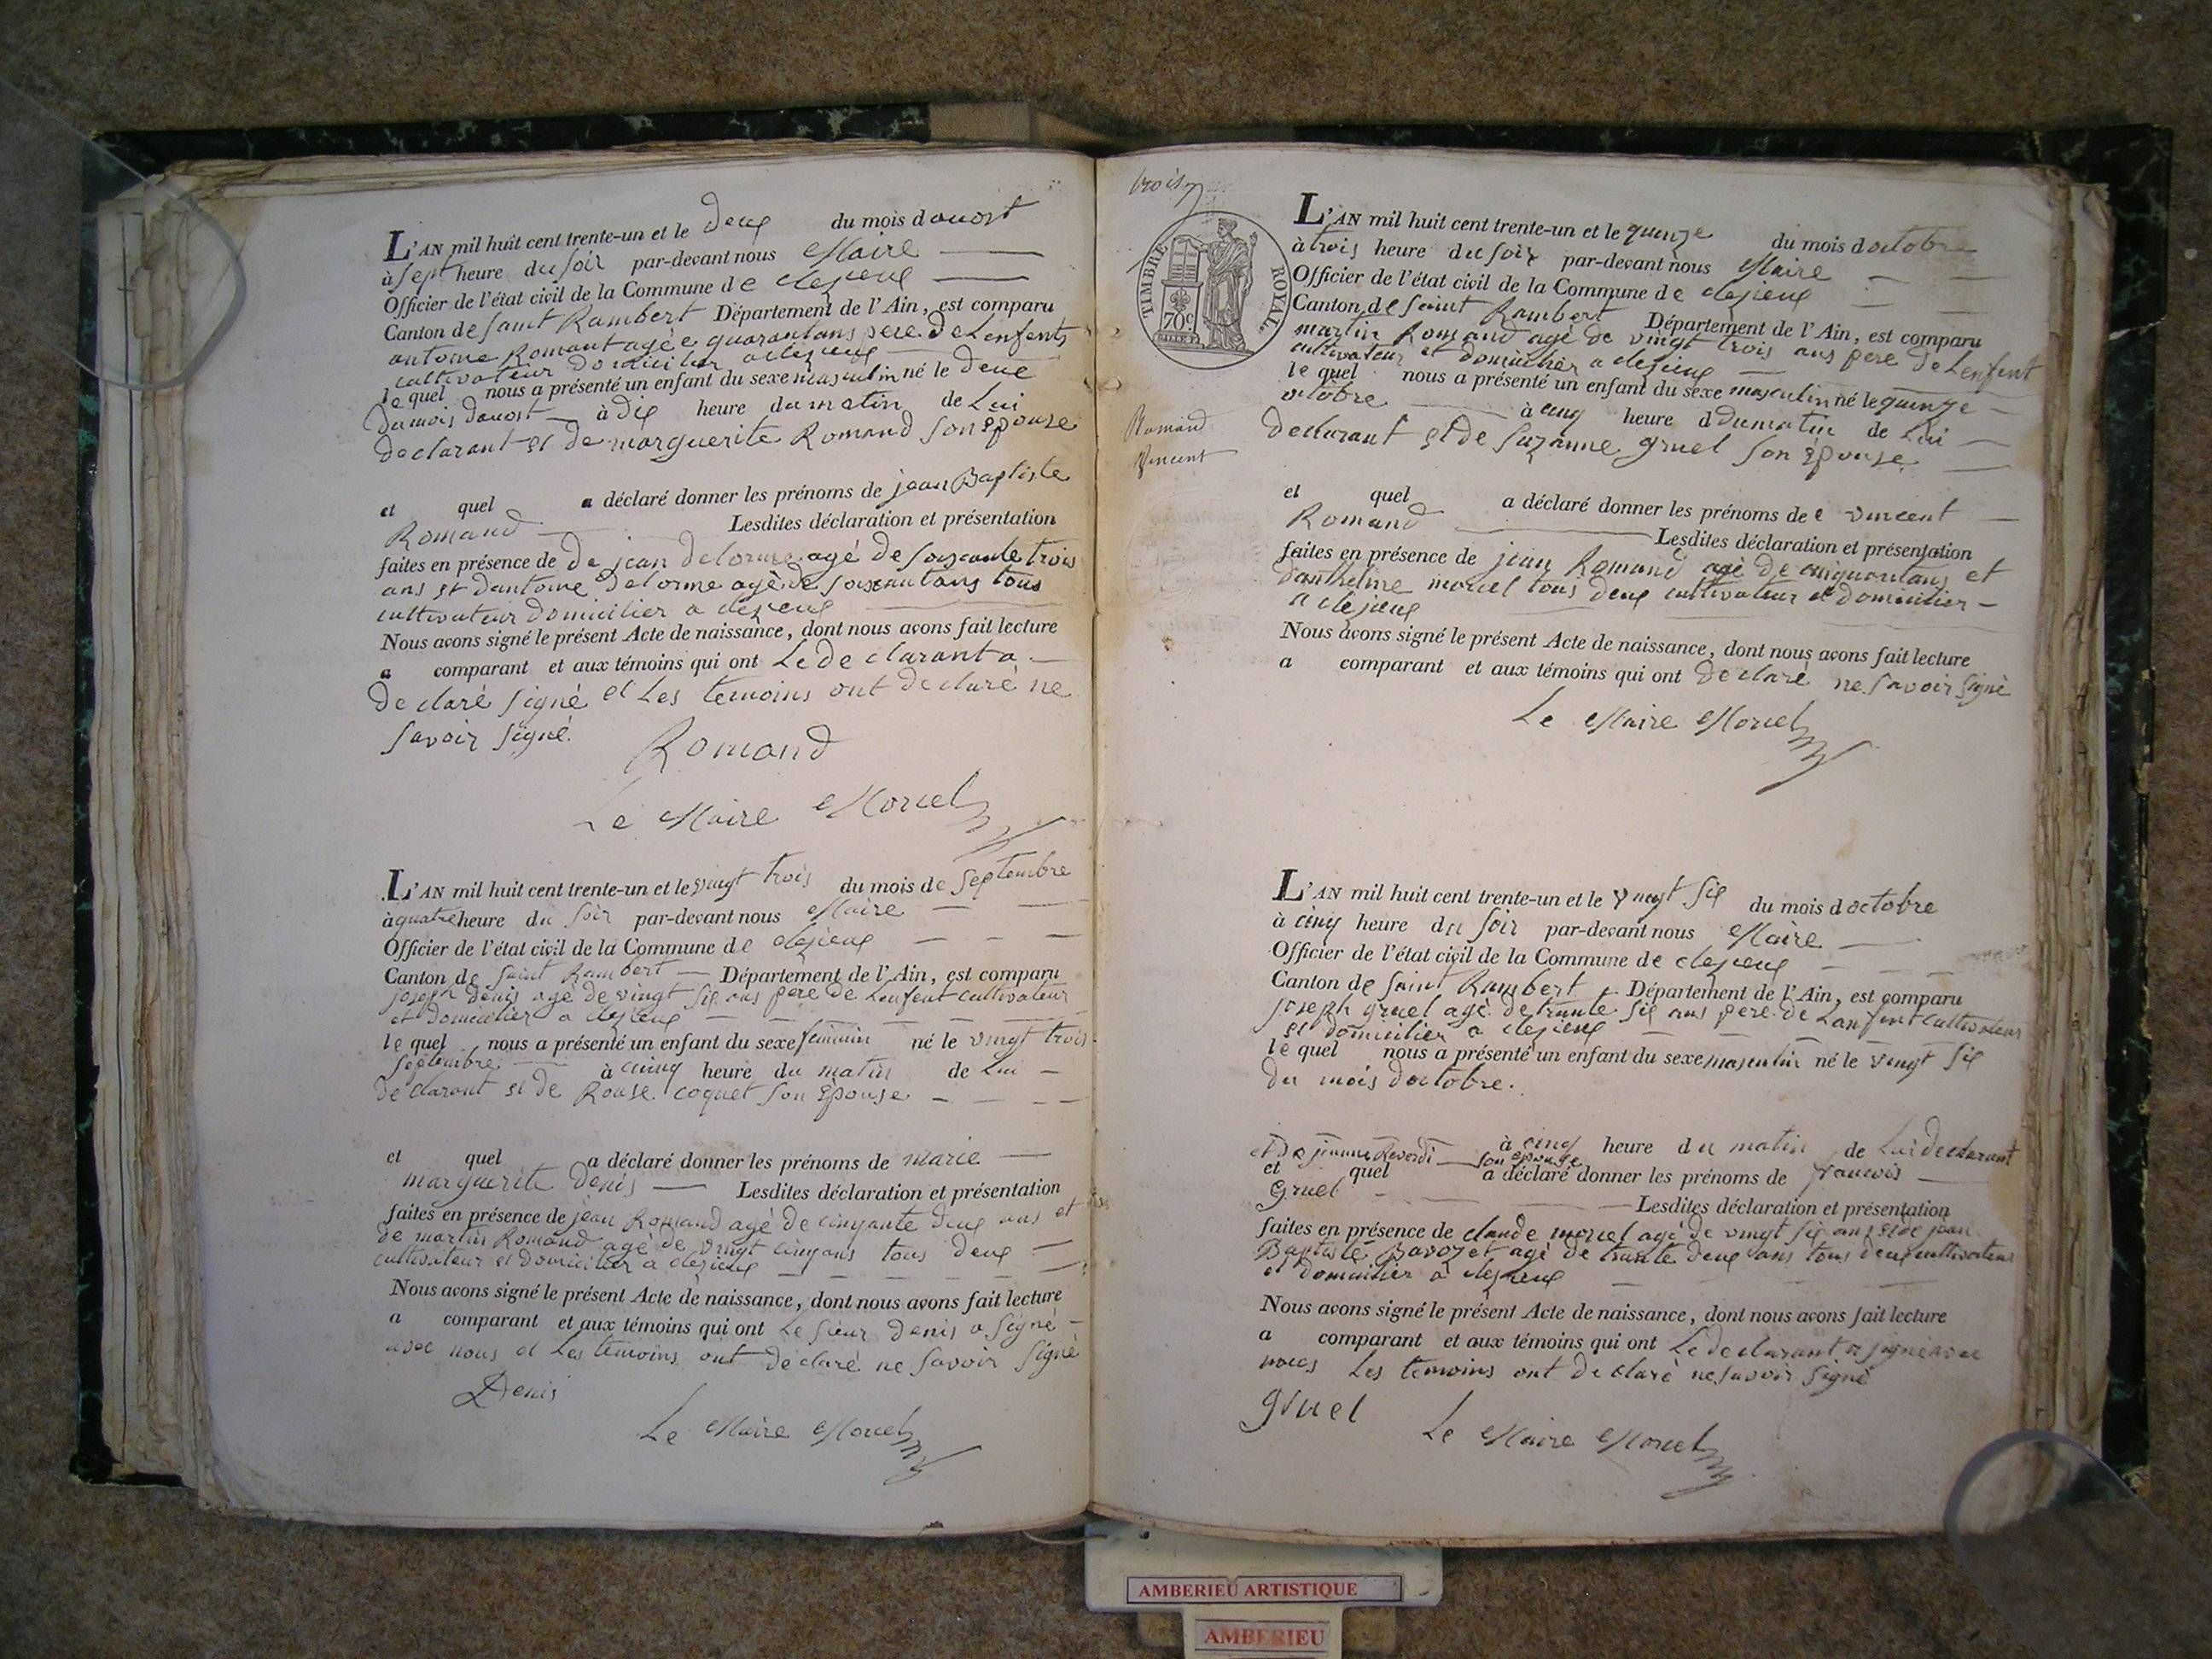 L'AN mil huit cent trente-un et le deux du mois d aoust
à sept heure du soir par-devant nous Maire
Officier de l'état civil de la Commune de cleyzieux
Canton de saint Rambert Département de l'Ain, est comparu
antoine Romant agée quarantans pere de Lenfents
cultivateur domicilier a cleyzieux
le quel nous a présenté un enfant du sexe masculin né le deux
du mois daoust à dix heure du matin de Lui
declarant et de marguerite Romand son Epouse
et quel a déclaré donner les prénoms de jean Baptiste
Romand Lesdites déclaration et présentation
faites en présence de de jean delorme agé de soixcante trois
ans et dantoine delorme agé de soixcantans tous
cultivateur domicilier a cleyzieux
Nous avons signé le présent Acte de naissance, dont nous avons fait lecture
a comparant et aux témoins qui ont Le declarant a
declaré signé et Les temoins ont declaré ne
savoir signé.
Romand
Le Maire Morcel
L'AN mil huit cent trente-un et le vingt trois du mois de septembre
à quatre heure du soir par-devant nous Maire
Officier de l'état civil de la Commune de cleyzieux
Canton de saint Rambert Département de l'Ain, est comparu
joseph denis agé de vingt six ans pere de Lenfent cultivateur
et domicilier a cleyzieux
le quel nous a présenté un enfant du sexe feminin né le vingt trois
septembre à cinq heure du matin de Lui
declarant et de Rouse coquet son Epouse
et quel a déclaré donner les prénoms de marie
marguerite denis Lesdites déclaration et présentation
faites en présence de jean Romand agé de cinqante deux ans et
de martin Romand agé de vingt cinqans tous deux
cultivateur et domicilier a cleyzieux
Nous avons signé le présent Acte de naissance, dont nous avons fait lecture
a comparant et aux témoins qui ont Le sieur denis a signé
avec nous et Les temoins ont declaré ne savoir signé
Denis
Le Maire Morcel
trois
TIMBRE ROYAL
70 c
Romand
Vincent
L'AN mil huit cent trente-un et le quinze du mois d octobre
à trois heure du soir par-devant nous Maire
Officier de l'état civil de la Commune de cleyzieux
Canton de saint Rambert Département de l'Ain, est comparu
martin Romand agé de vingt trois ans pere de Lenfent
cultivateur et domicilier a cleyzieux
le quel nous a présenté un enfant du sexe masculin né le quinze
octobre à cinq heure d dumatin de Lui
declarant et de suzanne gruel son Epouse
et quel a déclaré donner les prénoms de e vincent
Romand Lesdites déclaration et présentation
faites en présence de jean Romand agé de cinquantans et
danthelme morcel tous deux cultivateur et domicilier
a cleyzieux
Nous avons signé le présent Acte de naissance, dont nous avons fait lecture
a comparant et aux témoins qui ont declaré ne savoir signé
Le Maire Morcel
L'AN mil huit cent trente-un et le vingt six du mois d octobre
à cinq heure du soir par-devant nous Maire
Officier de l'état civil de la Commune de cleyzieux
Canton de saint Rambert Département de l'Ain, est comparu
joseph gruel agé de trante six ans pere de Lanfent cultivateur
et domicilier a cleyzieux
le quel nous a présenté un enfant du sexe masculin né le vingt six
du mois doctobre.
à cinq heure du matin de Lui declarant
et De jeanne Reverdi son epouse
et quel a déclaré donner les prénoms de francois
Gruel Lesdites déclaration et présentation
faites en présence de claude morcel agé de vingt six ans et de jean
Baptiste Bavozet agé de trante deux ans tous deux cultivateur
et domicilier a cleyzieux
Nous avons signé le présent Acte de naissance, dont nous avons fait lecture
a comparant et aux témoins qui ont Le declarant a signé avec
nous Les temoins ont declaré ne savoir signé
gruel
Le Maire Morcel
AMBERIEU ARTISTIQUE
AMBERIEU